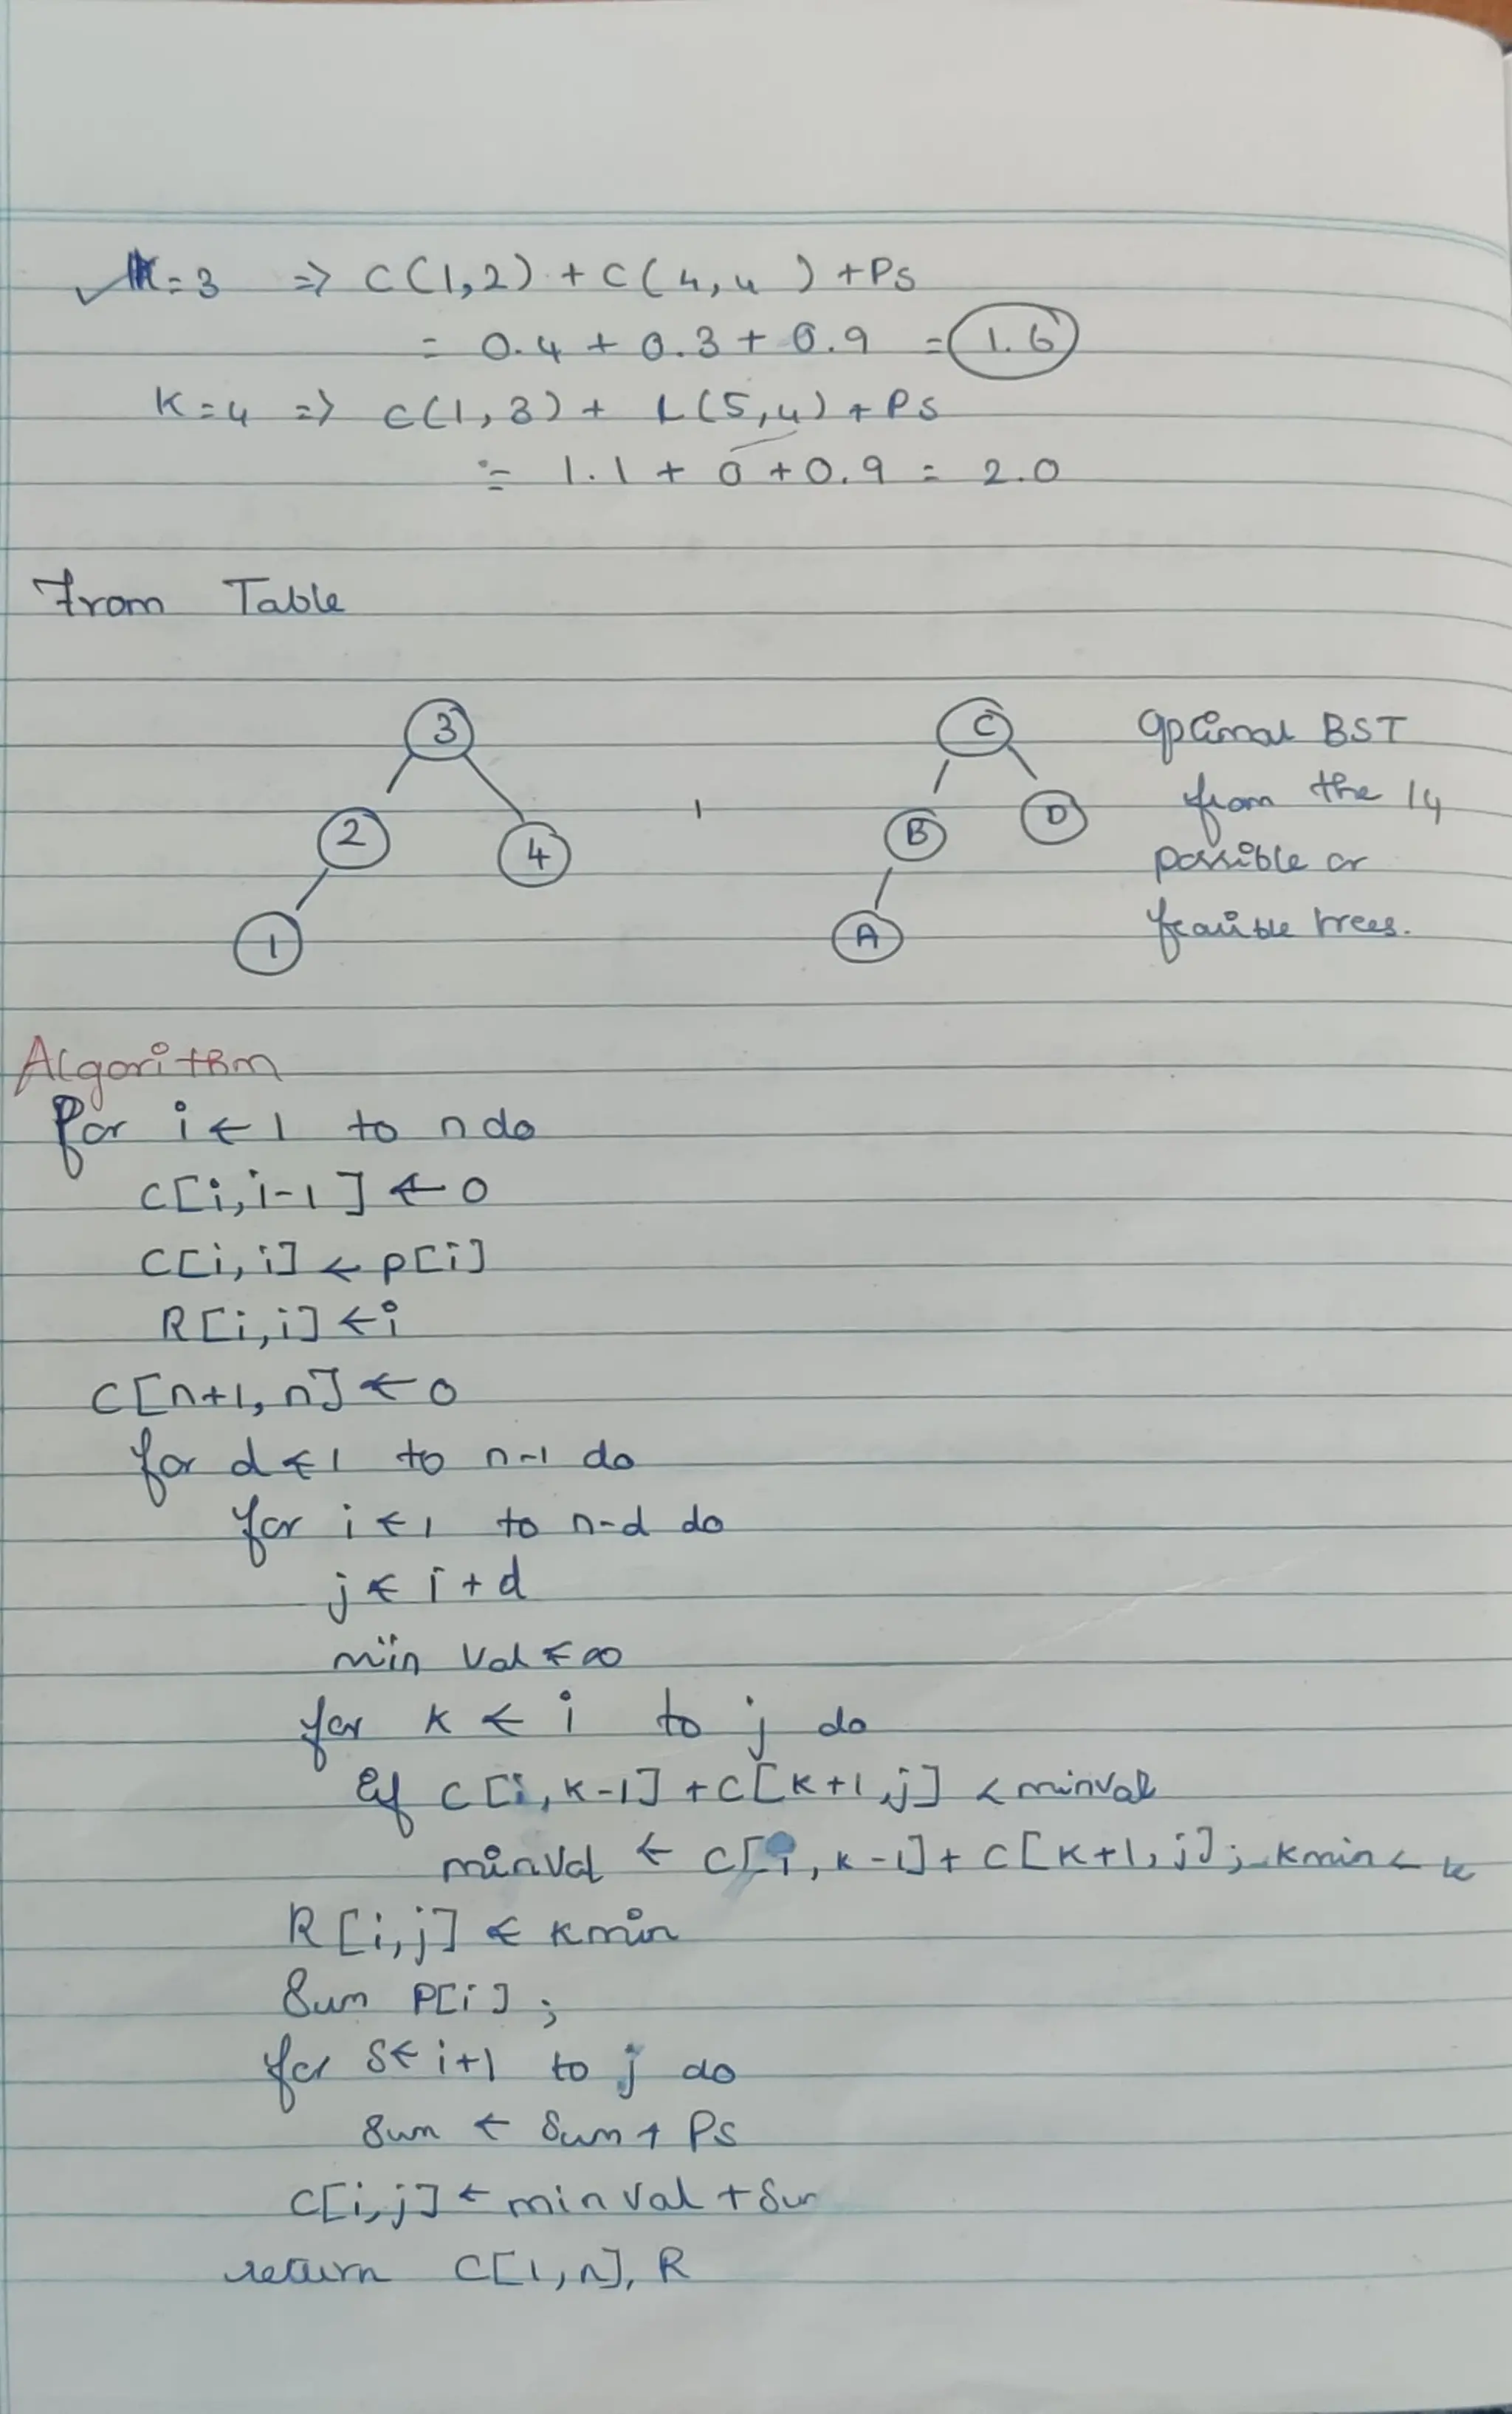 K=3 => C(1,2) + C(4,4) + Ps
= 0.4 + 0.3 + 0.9 = 1.6
K=4 => C(1,3) + C(5,4) + Ps
= 1.1 + 0 + 0.9 = 2.0
From Table
3
2
4
1
,
C
B
D
A
Optimal BST
from the 14
possible or
feasible trees.
Algorithm
for i ← 1 to n do
C[i, i-1] ← 0
C[i, i] ← p[i]
R[i, i] ← i
C[n+1, n] ← 0
for d ← 1 to n-1 do
for i ← 1 to n-d do
j ← i + d
min val ← ∞
for K ← i to j do
if C[i, K-1] + C[K+1, j] < minval
minval ← C[i, K-1] + C[K+1, j]; Kmin ← k
R[i, j] ← Kmin
Sum P[i];
for S ← i+1 to j do
Sum ← Sum + Ps
C[i, j] ← min val + Sum
return C[1, n], R